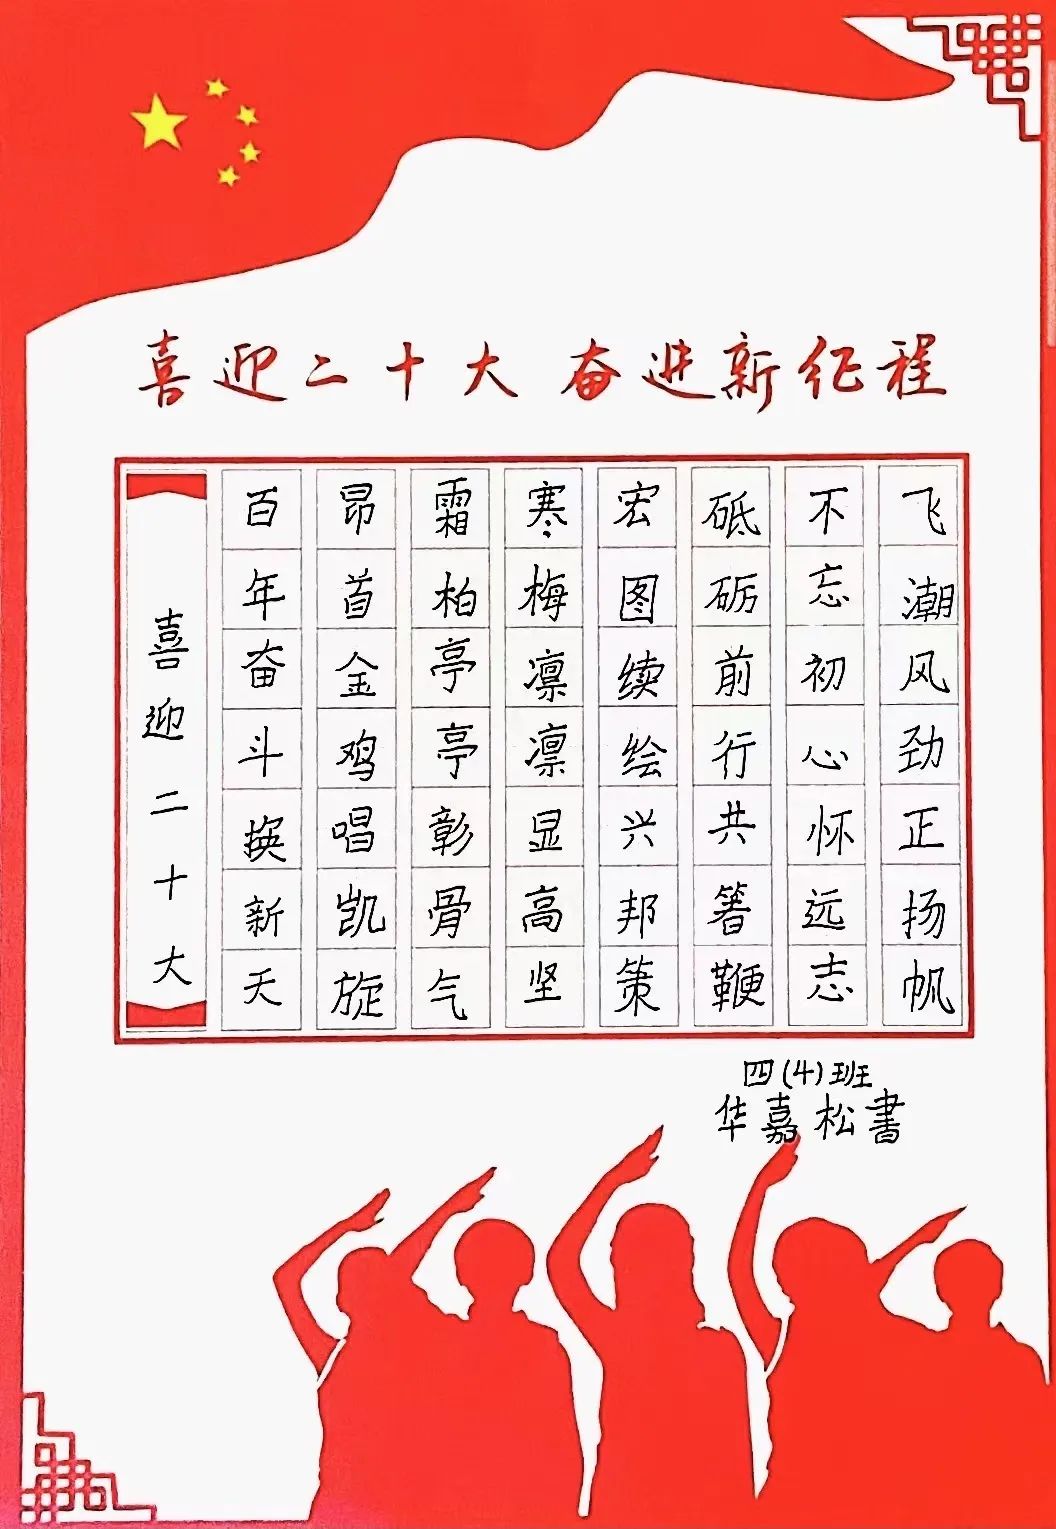 喜迎二十大 奋进新征程
喜迎二十大
百年奋斗换新天
昂首金鸡唱凯旋
霜柏亭亭彰骨气
寒梅凛凛显高坚
宏图续绘兴邦策
砥砺前行共箸鞭
不忘初心怀远志
飞潮风劲正扬帆
四(4)班
华嘉松書